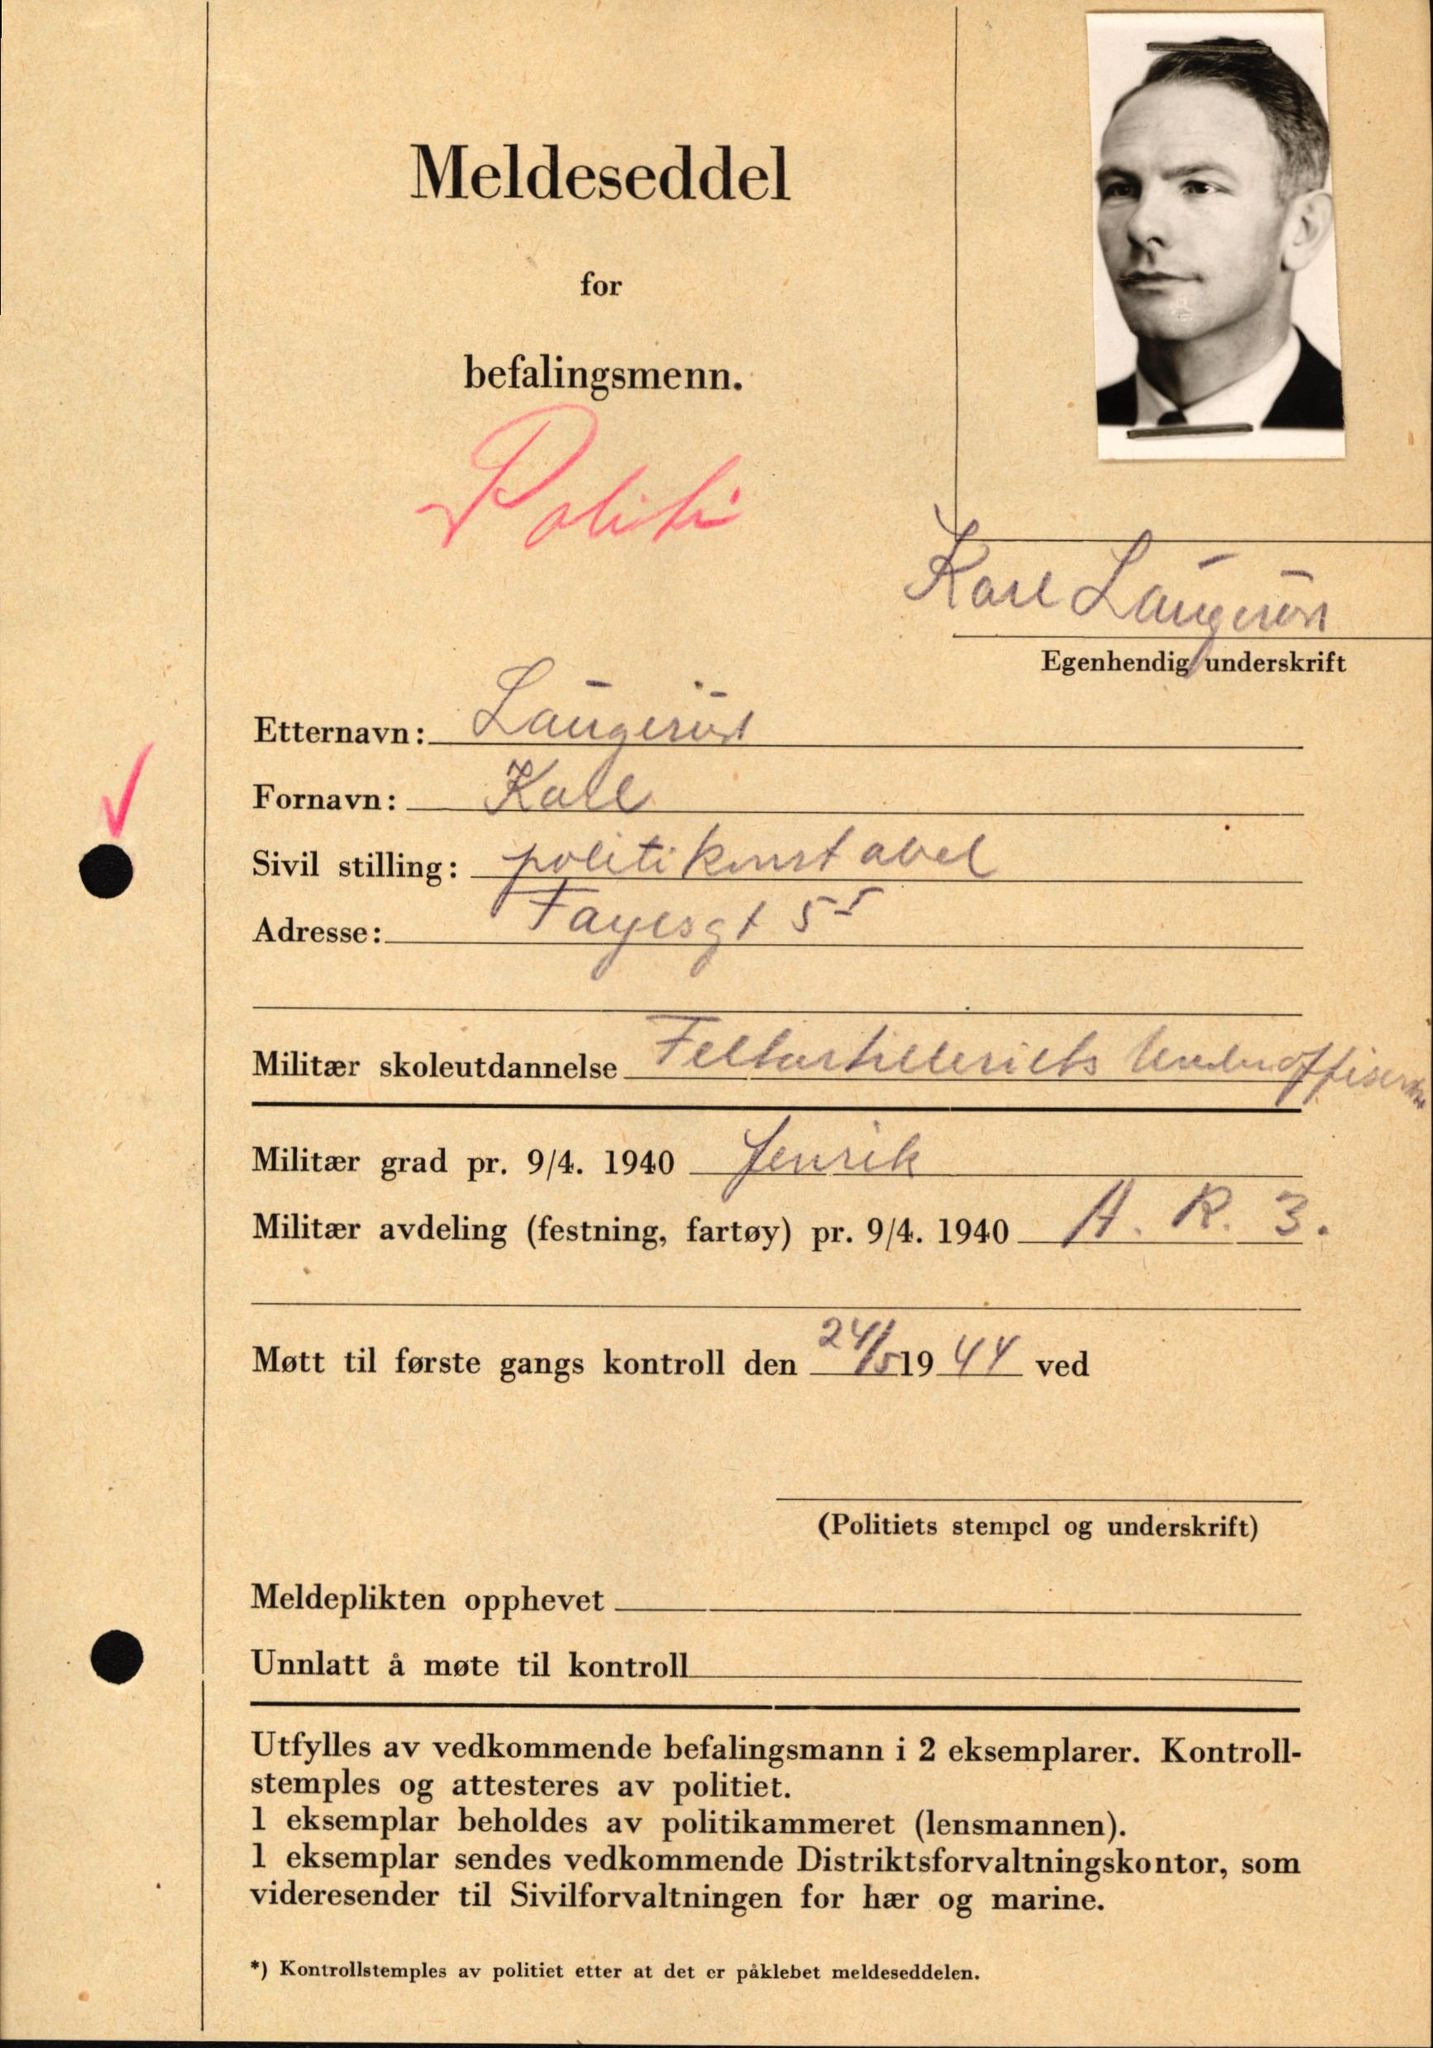 Meldeseddel
for
befalingsmenn.
Politi
Karl Laugerud
Egenhendig underskrift
Etternavn: Laugerud
Fornavn: Karl
Sivil stilling: politikonstabel
Adresse: Fayesgt 55
Militær skoleutdannelse Feltartilleriets
Militær grad pr. 9/4. 1940 fenrik
Militær avdeling (festning, fartøy) pr. 9/4. 1940 A. R. 3.
Møtt til første gangs kontroll den 24/5 1944 ved
(Politiets stempel og underskrift)
Meldeplikten opphevet
Unnlatt å møte til kontroll
Utfylles av vedkommende befalingsmann i 2 eksemplarer. Kontroll-
stemples og attesteres av politiet.
1 eksemplar beholdes av politikammeret (lensmannen).
1 eksemplar sendes vedkommende Distriktsforvaltningskontor, som
videresender til Sivilforvaltningen for hær og marine.
*) Kontrollstemples av politiet etter at det er påklebet meldeseddelen.